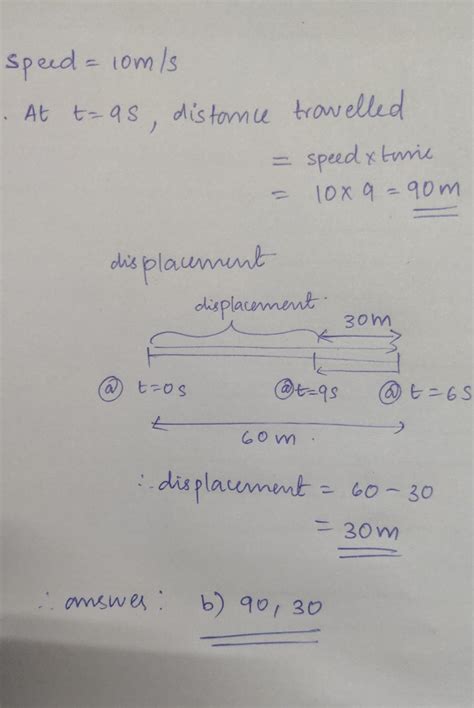 speed = 10m/s
. At t=9s, distance travelled
= speed x time
= 10 x 9 = 90m
displacement
displacement.
30m
@ t=0s @t=9s @ t=6s
60m.
∴ displacement = 60 - 30
= 30m
∴ answer: b) 90, 30